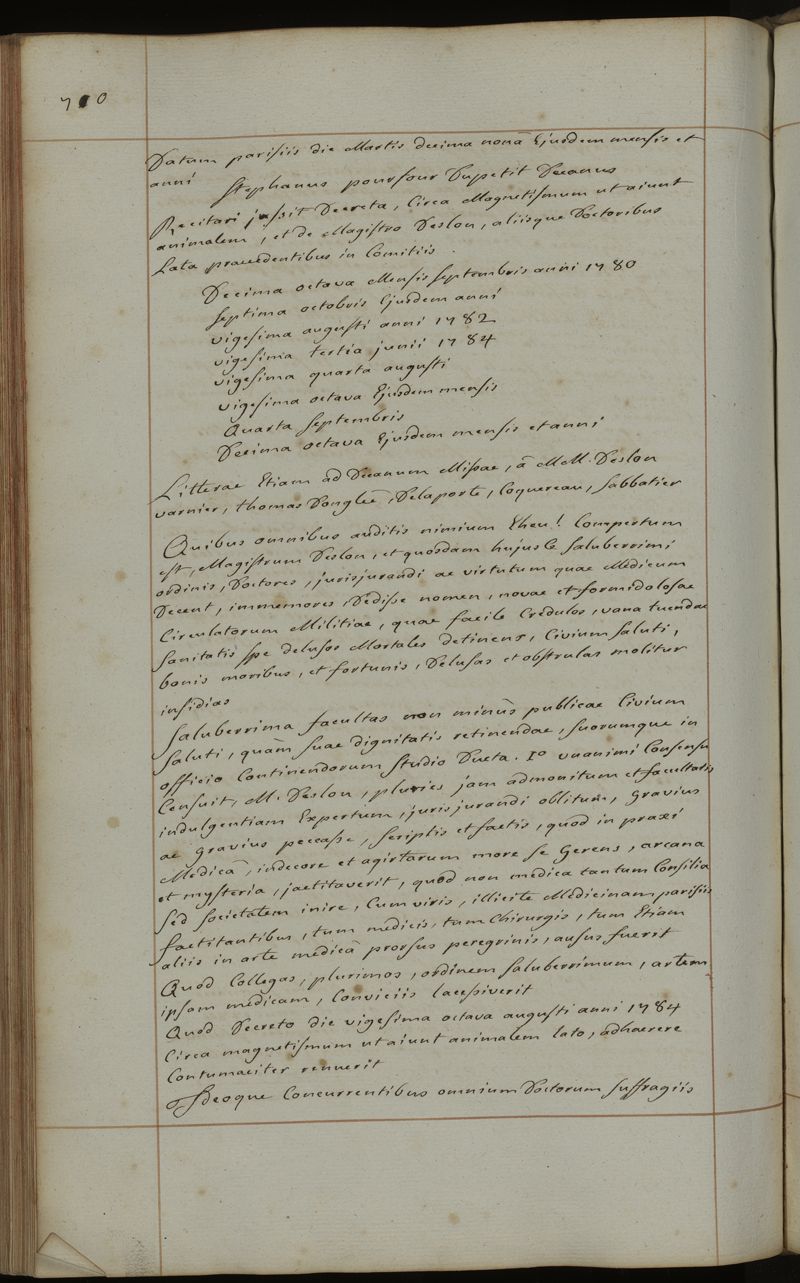 710
Datum parisiis die Martis decima nonâ Ejusdem mensis et
anni Stephanus pourfour Dupetit Decanus
Recitari jussit Decreta, Circa Magnetismum ut aiunt
animalem, et de Magistro Deslon, aliisque Doctoribus
Lata praecedentibus in Comitiis.
Decima octava Mensis septembris anni 1780
septima octobris Ejusdem anni
vigesima augusti anni 1782
vigesima tertia junii 1784
vigesima quarta augusti
vigesima octava Ejusdem mensis
Quarta septembris
Decima octava Ejusdem mensis et anni
Litterae Etiam ad Decanum Missae, â MM. Deslon
varnier, thomas Donglée, Delaporte, Coquereau, Sabbatier
Quibus omnibus auditis nimium Eheu! Compertum
est, Magistrum Deslon, et quosdam hujusce Saluberrimi
ordinis, Doctores, jurisjurandi ac virtutum quae Medicum
Decent, immemores, Dedisse nomen, novae et formidolosae
Circulatorum Militiae, quae facile Crédulos, vana tuendae
Sanitatis spe delusos Mortales detinens, Civium Saluti,
bonis moribus, et fortunis, Delusas et obstrulas molitur
insidias
Saluberrima facultas non minùs publicae Civium
Saluti, quàm suae dignitatis retinendae, suorumque in
officio Continendorum Studio Ducta. 1o unanimi Consensu
Censuit, M. Deslon, pluries jam admonitum et facultatis
indulgentiam Expertum, jurisjurandi oblitum, gravius
ac gravius peccasse, scriptis et factis, quòd in praxi
Medicâ, indecore et agirtarum more se Gerens, arcana
et mysteria, jactitaverit, quòd non medica tantum Consilia
sed societatem inire, Cum viris, illicite Médicinam parisiis
factitantibus, tum medicis, tum Chirurgis, tum Etiam
aliis in arte médicâ prorsus peregrinis, ausus fuerit
Quod Collegas, plurimos, ordinem saluberrimum, artem
ipsam médicam, Conviciis lacessiverit
Quòd Decreto die vigesima octava augusti anni 1784
Circa magnetismum ut aiunt animalem lato, adhaerere
Contumaciter renuerit
Ideoque Concurrentibus omnium Doctorum suffragiis